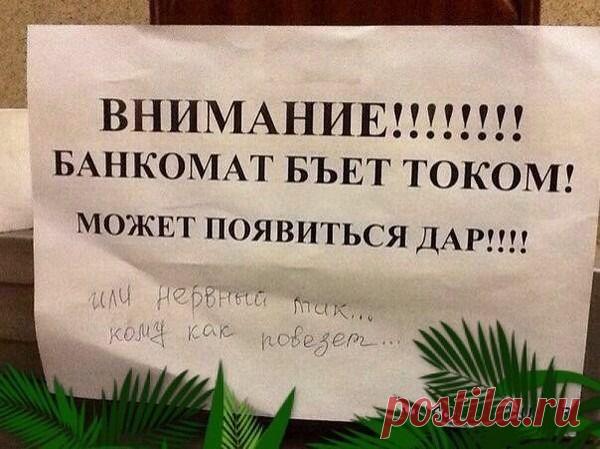 ВНИМАНИЕ!!!!!!!!!
БАНКОМАТ БЪЕТ ТОКОМ!
МОЖЕТ ПОЯВИТЬСЯ ДАР!!!!
или нервный тик...
кому как повезет...
postila.ru